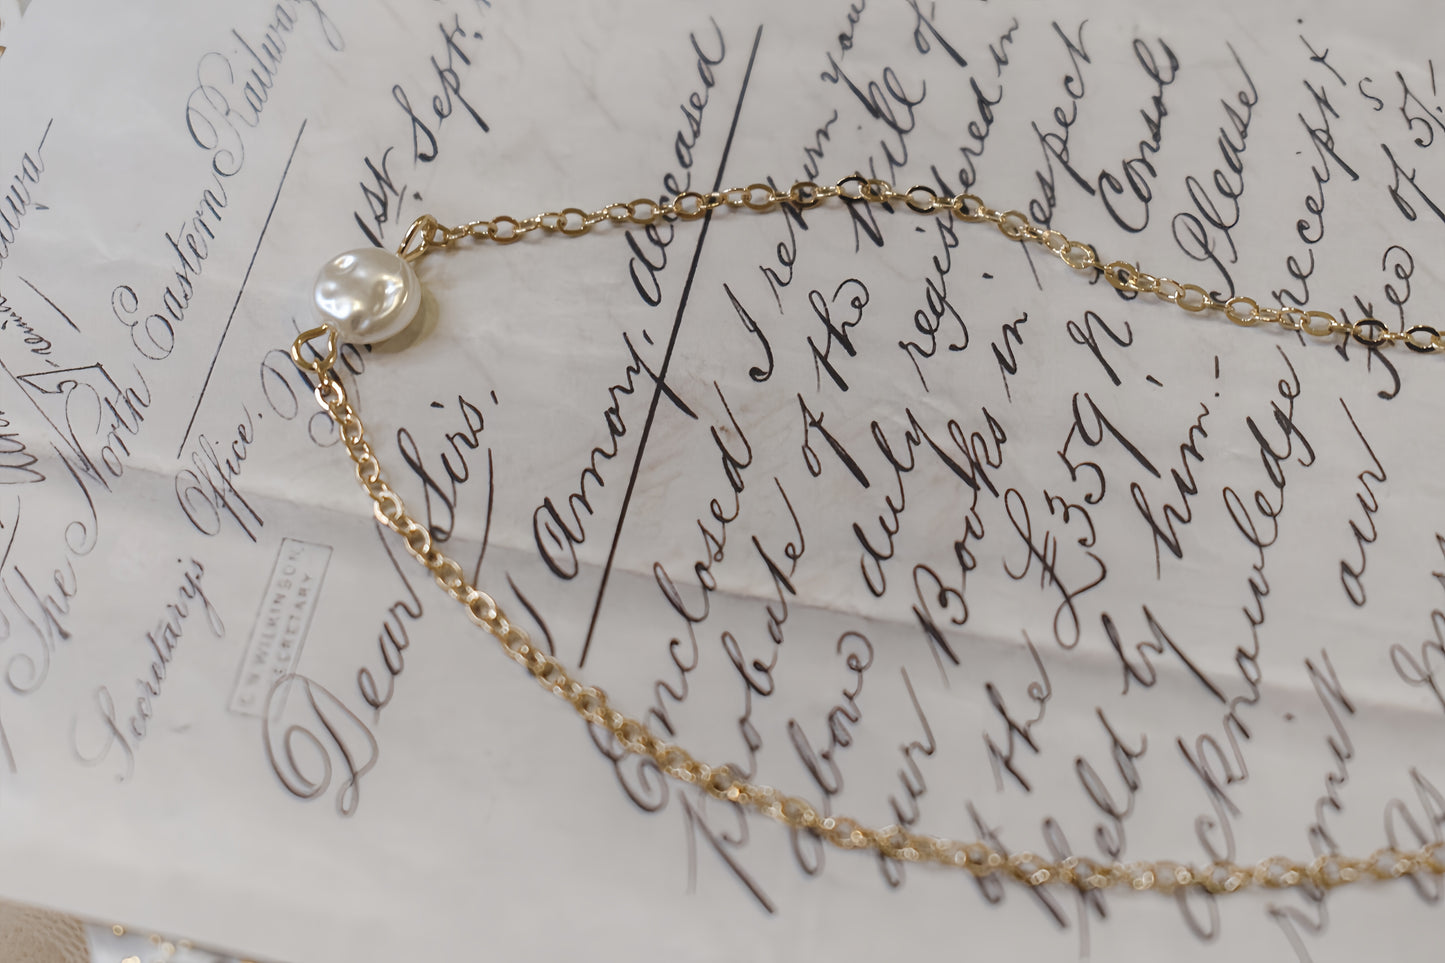 The North Eastern Railway
Secretary's Office.
C N WILKINSON
SECRETARY
1st. Sept.
Dear Sirs,
J Amory, deceased
Enclosed I return you
probate of the Will of
above duly registered in
our Books in respect
of the £359 N Consols
held by him. - Please
acknowledge receipt &
remit our Fee of 5/-